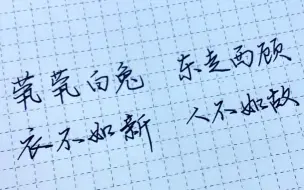 茕茕白兔 东走西顾
衣不如新 人不如故